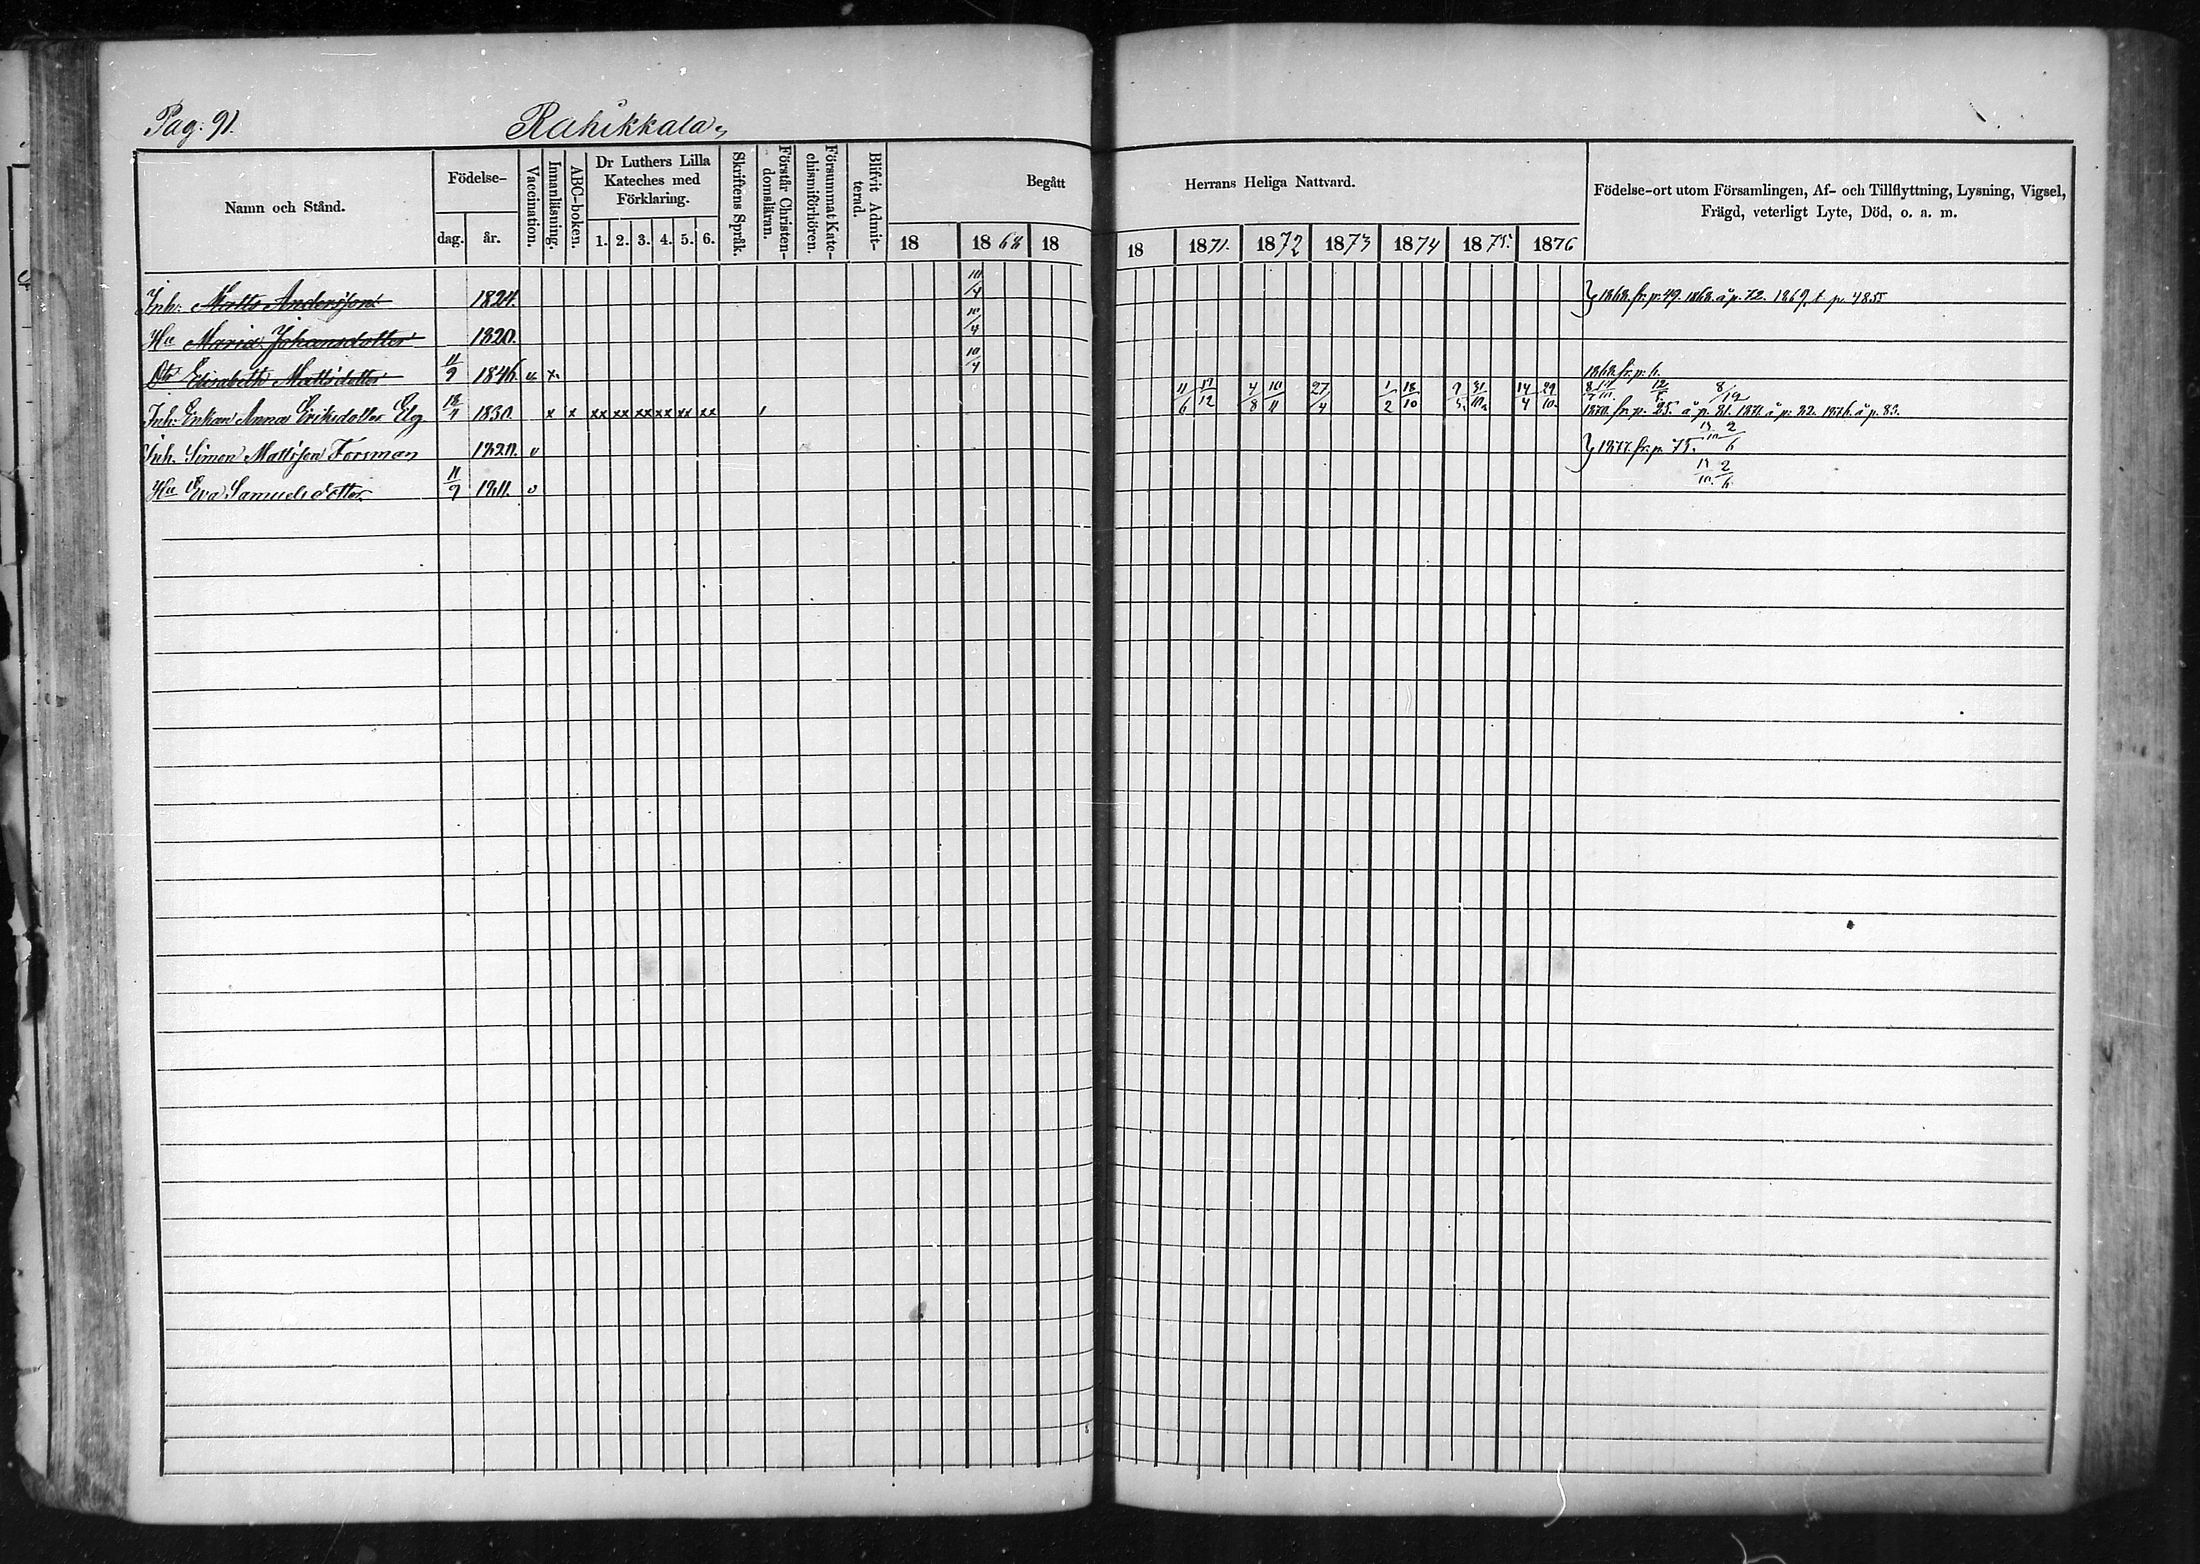 Pag. 91. Rahikkala
Namn och Stånd. Födelse- dag. år. Vaccination. Innanläsning. ABC-boken. Dr Luthers Lilla Kateches med Förklaring. 1. 2. 3. 4. 5. 6. Skriftens Språk. Förstår Christendomsläran. Försummat Katechismiförhören. Blifvit Admitterad. Begått Herrans Heliga Nattvard. Födelse-ort utom Församlingen, Af- och Tillflyttning, Lysning, Vigsel, Frägd, veterligt Lyte, Död, o. a. m.
18 1868 18 18 1871. 1872 1873 1874 1875. 1876
Inh: Matts Andersson 1824. 10/4 1868. fr. p. 49. 1868. å p. 72. 1869. t. p. 4855
Hu Maria Johansdotter 1820. 10/4
Dtr Elisabeth Mattsdotter 11/9 1846. v x 10/4 1868. fr. p. 6.
Inh: Enkan Anna Eriksdotter Elg 18/11 1830. x x xx xx xx xx xx xx 11/6 17/12 4/8 10/11 27/4 1/2 18/10 31/10 14/4 29/10. 1870. fr. p. 25. å p. 81. 1871 å p: 82. 1876. å p. 83.
Inh. Simon Mattsson Forsman 1820. v 1877. fr. p. 75. 2/6
Hu Eva Samuelsdotter 11/9 1811. v 2/6